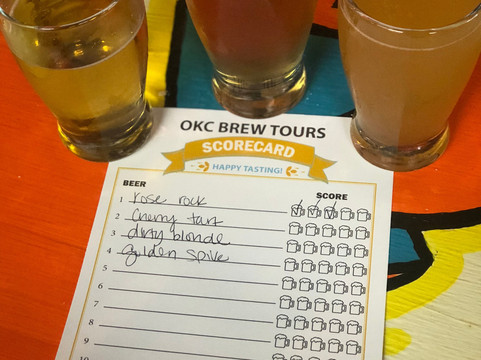 OKC BREW TOURS
SCORECARD
HAPPY TASTING!
BEER SCORE
1 rose rock
2 Cherry tart
3 dirty blonde
4 Golden spike
5
6
7
8
9
10